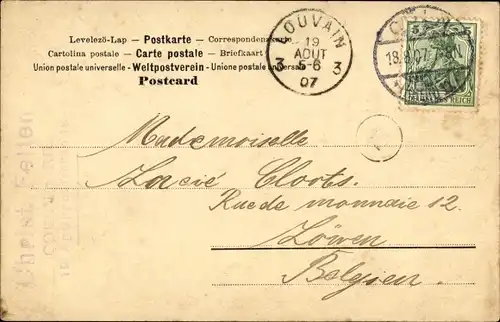 Levelezö-Lap — Postkarte — Correspondenzkarte
Cartolina postale — Carte postale — Briefkaart
Union postale universelle - Weltpostverein - Unione postale universale
Postcard
LOUVAIN
19
AOUT
5-6
07
3 3
5 5
18.8.07
REICH
Mademoiselle
Lucie Cloots.
Rue de monnaie 12.
Löwen
Belgien.